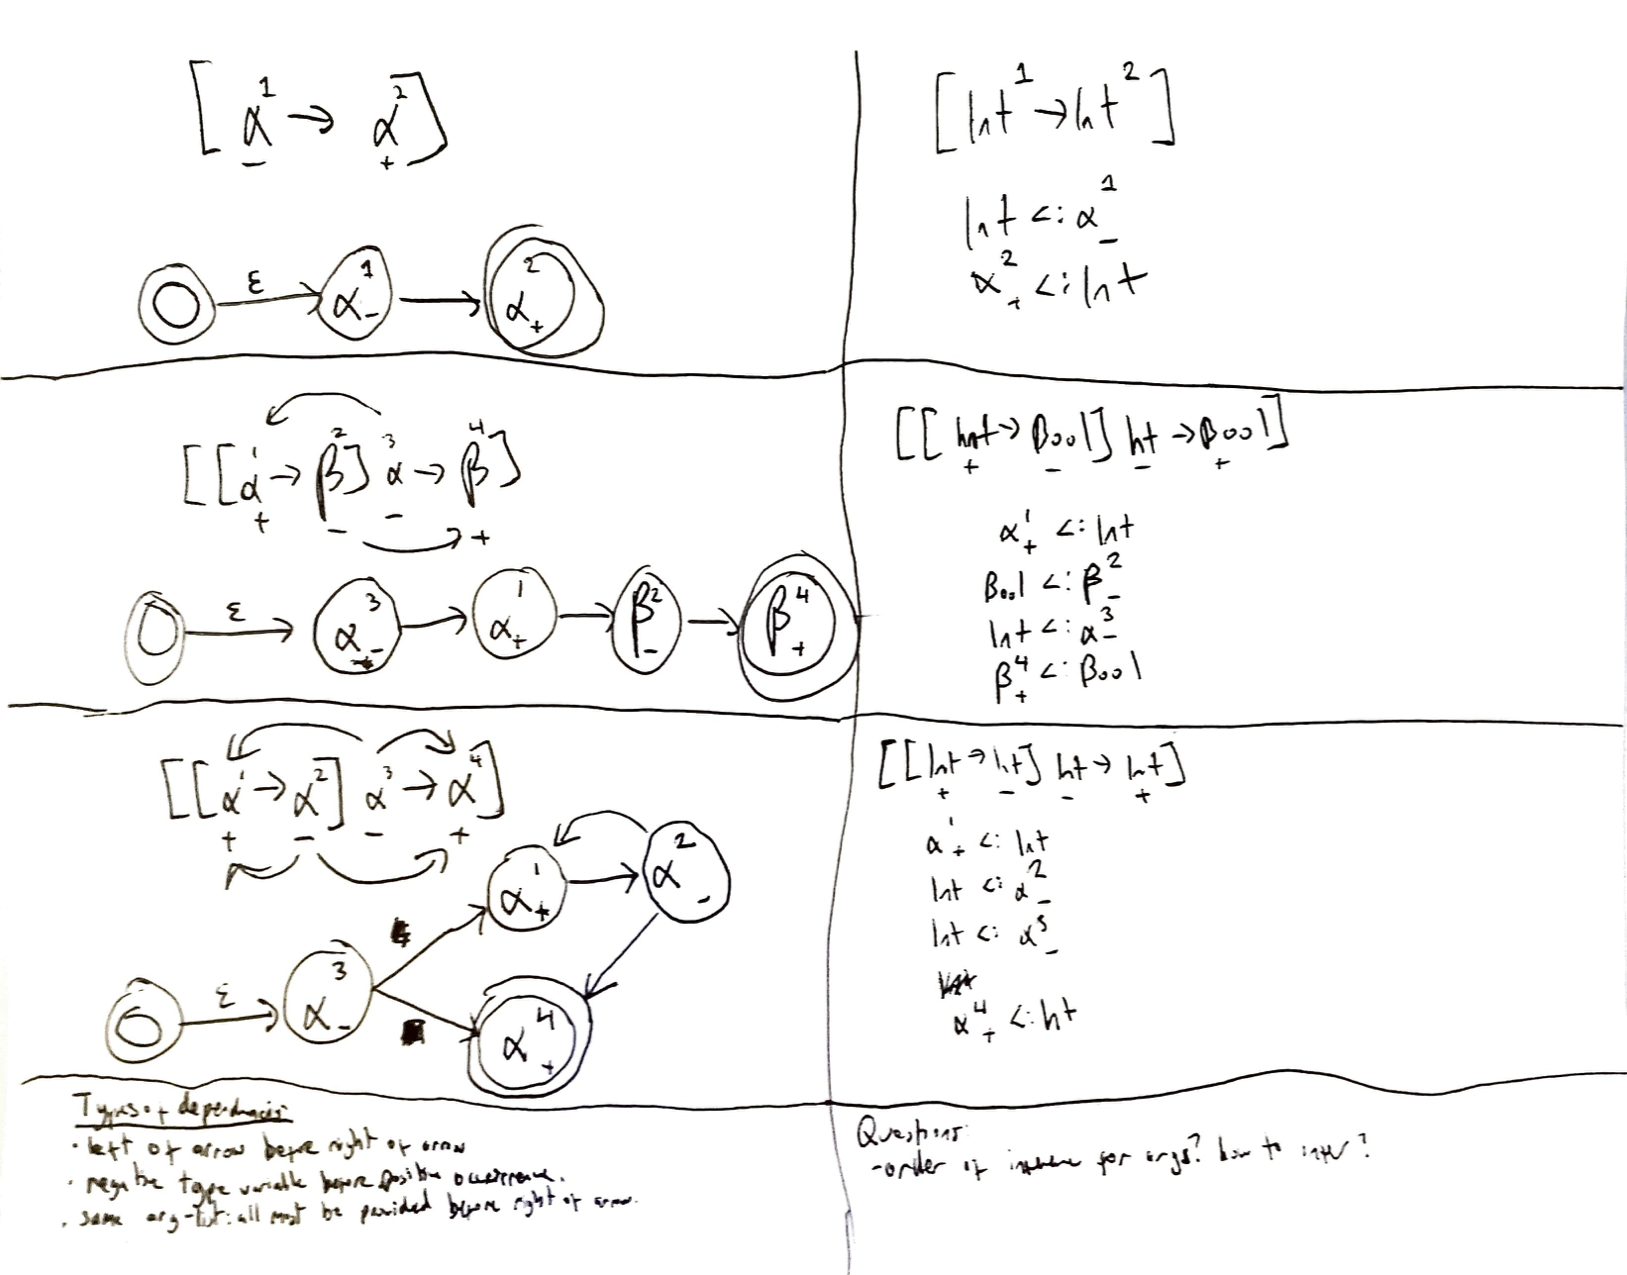 [α¹₋ → α²₊]
ε
α¹₋
α²₊
[Int¹ → Int²]
Int <: α¹₋
α²₊ <: Int
[[α¹₊ → β²₋] α³₋ → β⁴₊]
ε
α³₋
α¹₊
β²₋
β⁴₊
[[Int₊ → Bool₋] Int₋ → Bool₊]
α¹₊ <: Int
Bool <: β²₋
Int <: α³₋
β⁴₊ <: Bool
[[α¹₊ → α²₋] α³₋ → α⁴₊]
α¹₊
α²₋
ε
α³₋
α⁴₊
[[Int₊ → Int₋] Int₋ → Int₊]
α¹₊ <: Int
Int <: α²₋
Int <: α³₋
α⁴₊ <: Int
Types of dependencies:
· left of arrow before right of arrow
· negative type variable before positive occurrence.
· same arg-list: all must be provided before right of arrow.
Questions:
-order of for args? how to infer?